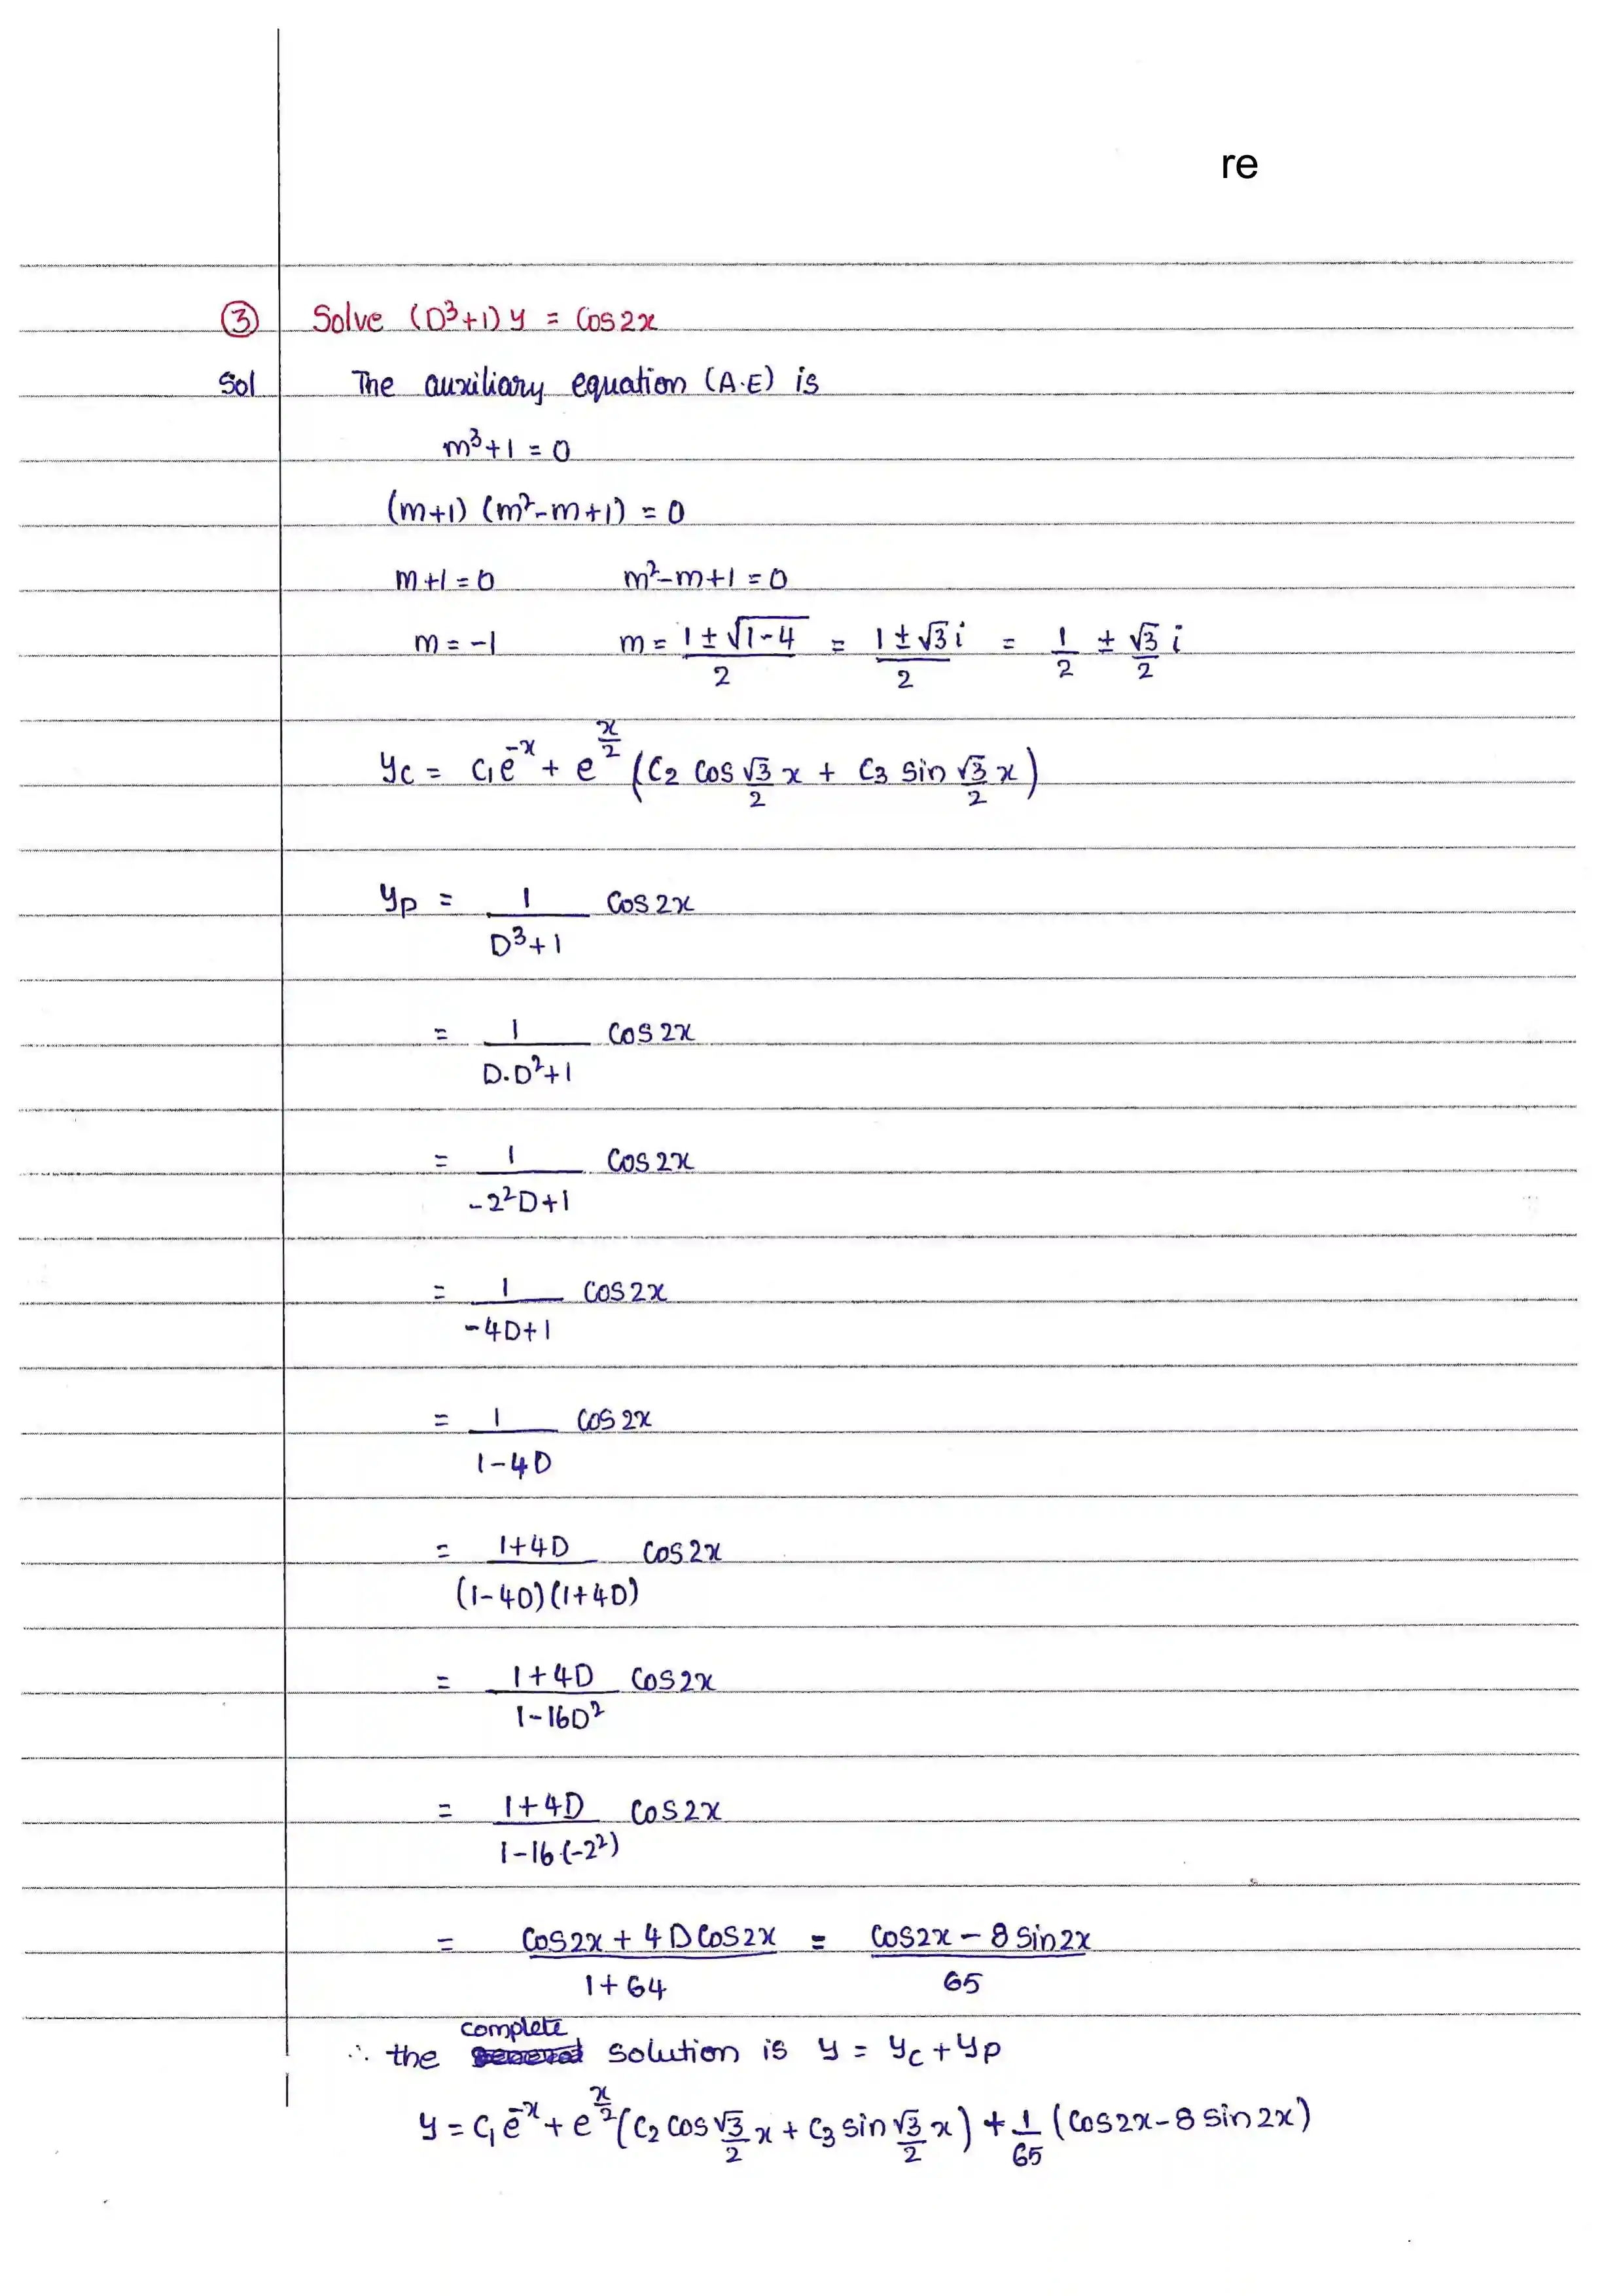 re
③ Solve (D³+1) y = Cos2x
Sol The auxiliary equation (A.E) is
m³+1 = 0
(m+1) (m²-m+1) = 0
m+1=0 m²-m+1=0
m = -1 m = (1 ± √(1-4))/2 = (1 ± √3 i)/2 = 1/2 ± √3/2 i
yc = c₁e^(-x) + e^(x/2) (c₂ cos √3/2 x + c₃ sin √3/2 x)
yp = 1/(D³+1) Cos2x
= 1/(D.D²+1) Cos2x
= 1/(-2²D+1) Cos2x
= 1/(-4D+1) Cos2x
= 1/(1-4D) Cos2x
= (1+4D)/((1-4D)(1+4D)) Cos2x
= (1+4D)/(1-16D²) Cos2x
= (1+4D)/(1-16(-2²)) Cos2x
= (Cos2x + 4DCos2x)/(1+64) = (Cos2x - 8Sin2x)/65
∴ the complete solution is y = yc + yp
y = c₁e^(-x) + e^(x/2) (c₂ cos √3/2 x + c₃ sin √3/2 x) + 1/65 (Cos2x - 8 sin 2x)